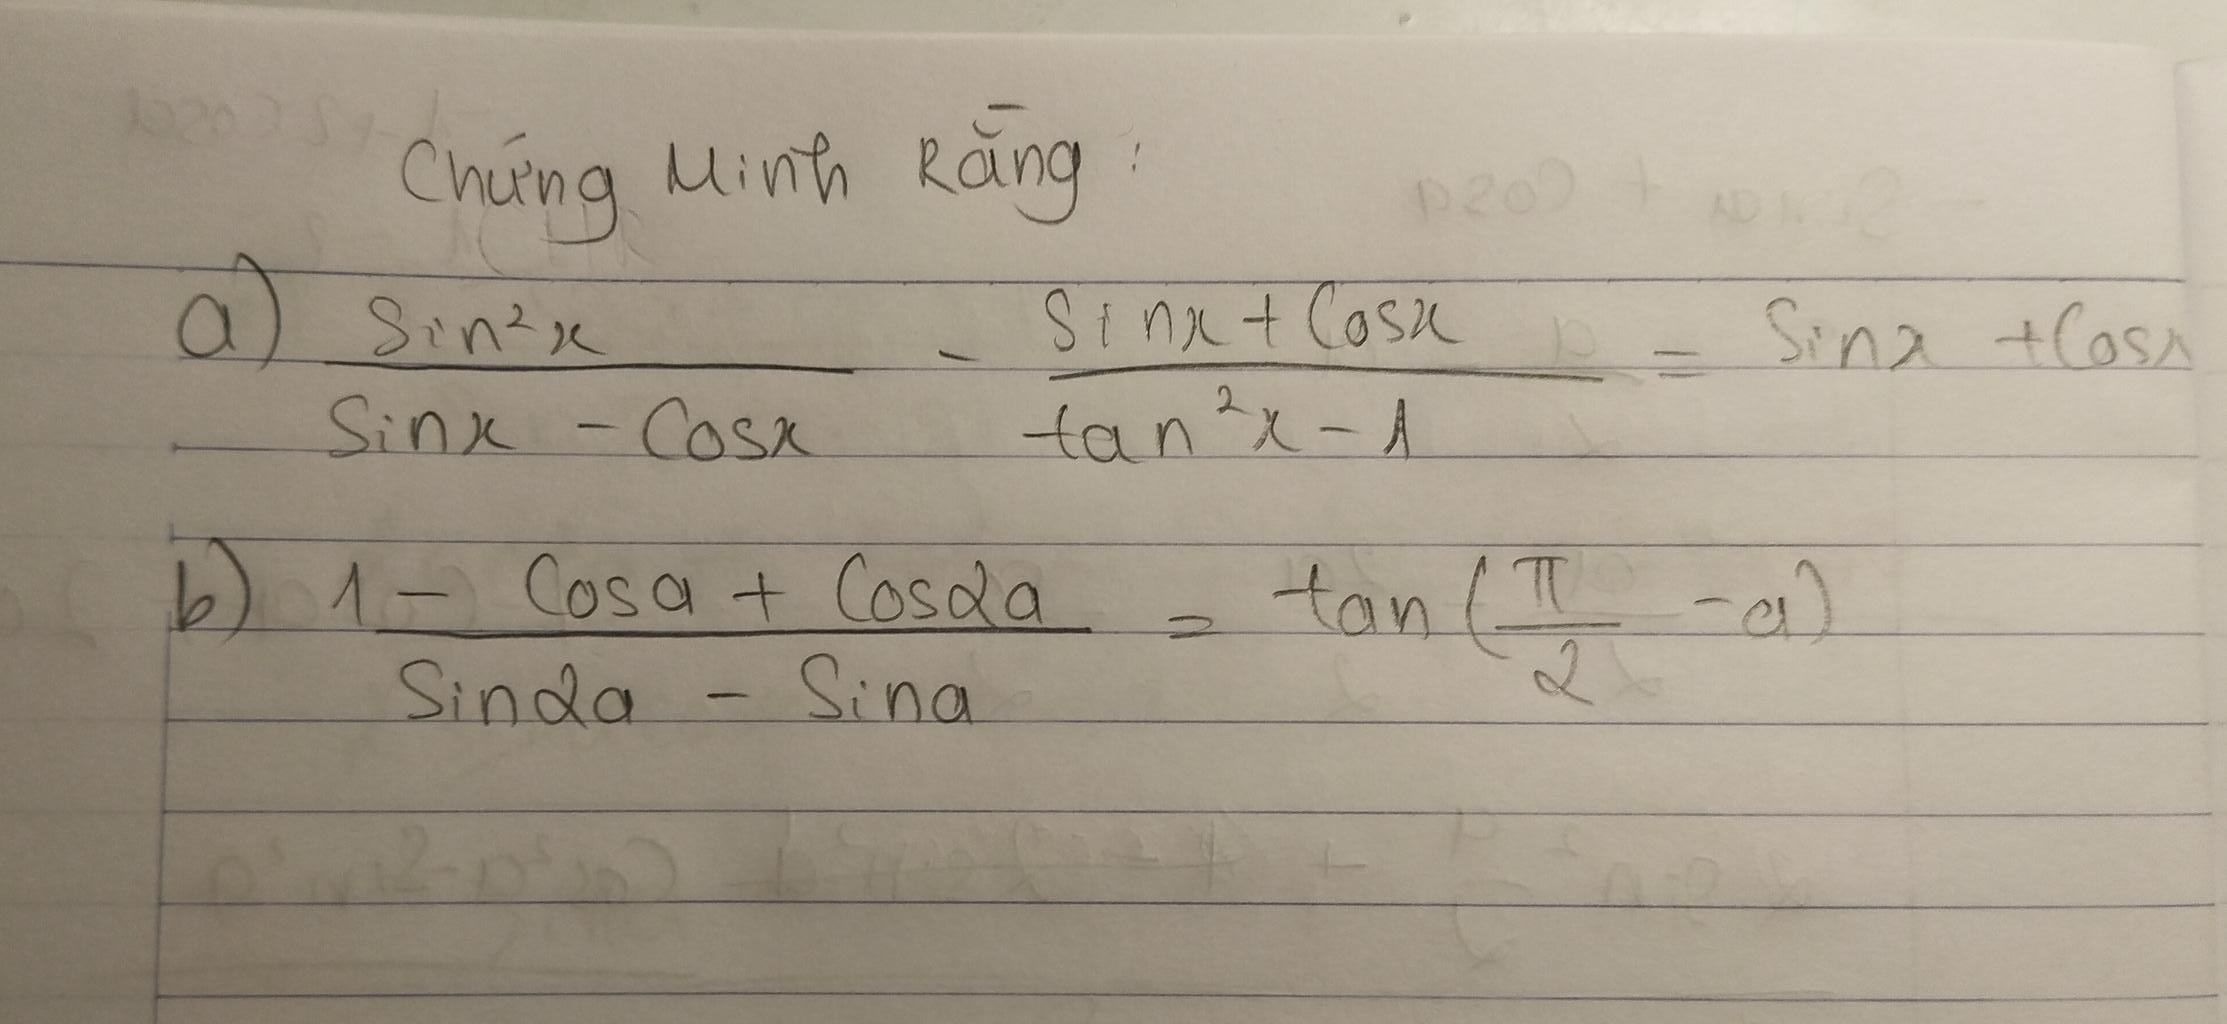 Chứng Minh Rằng:
a) Sin²x / (Sinx - Cosx) - (Sinx + Cosx) / (tan²x - 1) = Sinx + Cosx
b) (1 - Cosa + Cos2a) / (Sin2a - Sina) = tan(π/2 - a)